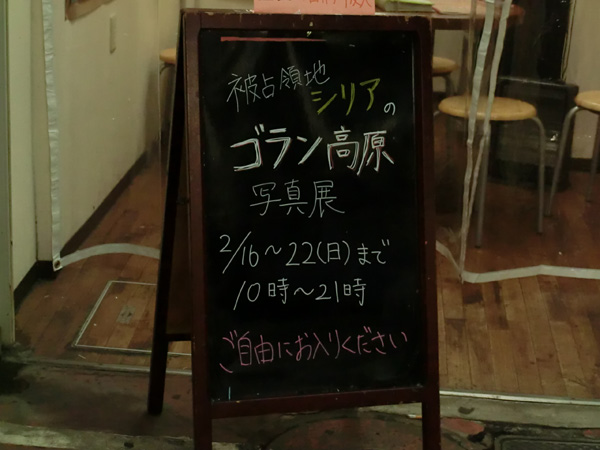 被占領地
シリアの
ゴラン高原
写真展
2/16～22(日)まで
10時～21時
ご自由にお入りください